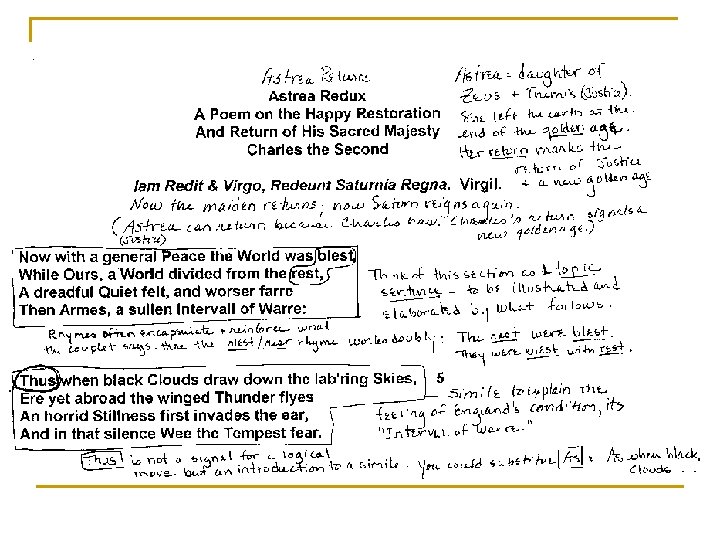 Astrea Returns
Astrea Redux
A Poem on the Happy Restoration
And Return of His Sacred Majesty
Charles the Second
Astrea = daughter of
Zeus + Themis (Justice).
She left the earth at the
end of the golden age.
Her return marks the
return of Justice
+ a new golden age
Iam Redit & Virgo, Redeunt Saturnia Regna. Virgil.
Now the maiden returns, now Saturn reigns again.
(Astrea can return because Charles has. Charles's return signals a
(Justice)
new golden age.)
Now with a general Peace the World was blest,
While Ours, a World divided from the rest,
A dreadful Quiet felt, and worser farre
Then Armes, a sullen Intervall of Warre:
Think of this section as a topic
sentence - to be illustrated and
elaborated by what follows.
Rhymes often encapsulate + reinforce what
the couplet says. Here the blest/rest rhyme works doubly: The rest were blest.
They were blest with rest.
Thus when black Clouds draw down the lab'ring Skies, 5
Ere yet abroad the winged Thunder flyes
An horrid Stillness first invades the ear,
And in that silence Wee the Tempest fear.
Simile to explain the
feeling of England's condition, its
"Interval of Warre."
Thus is not a signal for a logical
move, but an introduction to a simile. You could substitute As: As when black
Clouds . . .